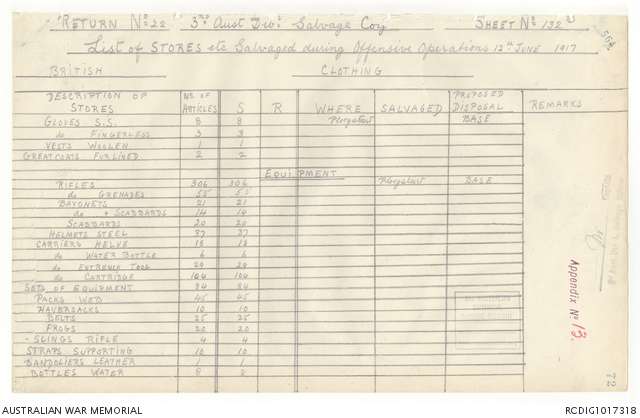 RETURN No 22 3RD Aust Div. Salvage Coy SHEET No 132
List of STORES etc Salvaged during Offensive Operations 12th JUNE 1917
BRITISH CLOTHING
DESCRIPTION OF STORES No. OF ARTICLES S R WHERE SALVAGED PROPOSED DISPOSAL REMARKS
GLOVES S.S. 8 8 Ploegsteert BASE
do FINGERLESS 3 3
VESTS WOOLEN 1 1
GREATCOATS FUR LINED 2 2
EQUIPMENT
RIFLES 306 306 Ploegsteert BASE
do GRENADES 55 55
BAYONETS 21 21
do + SCABBARDS 14 14
SCABBARDS 20 20
HELMETS STEEL 37 37
CARRIERS HELVE 18 18
do WATER BOTTLE 6 6
do ENTRENCH TOOL 20 20
do CARTRIDGE 104 104
SETS OF EQUIPMENT 84 84
PACKS WEB 45 45
HAVERSACKS 10 10
BELTS 25 25
FROGS 20 20
SLINGS RIFLE 4 4
STRAPS SUPPORTING 10 10
BANDOLIERS LEATHER 1 1
BOTTLES WATER 8 8
Appendix No 13.
72
AUSTRALIAN WAR MEMORIAL RCDIG1017318